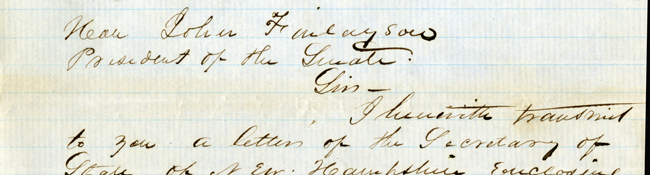 Hon John Finlayson
President of the Senate.
Sir—
I herewith transmit
to you a letter of the Secretary of
State of New Hampshire enclosing